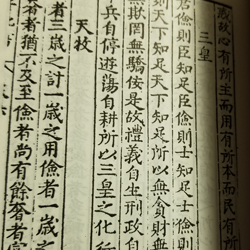 故心有所主而用有所本而民有
三皇
君儉則臣知足臣儉則士知足士儉
則天下知足天下知足所以無貪財無
無欺罔無驕佞是故禮義自生刑政自
兵自停遊蕩自耕所以三皇之化行
天牧
者三歲之計一歲之用儉者一歲之
奢者猶不及至儉者尚有餘奢者富